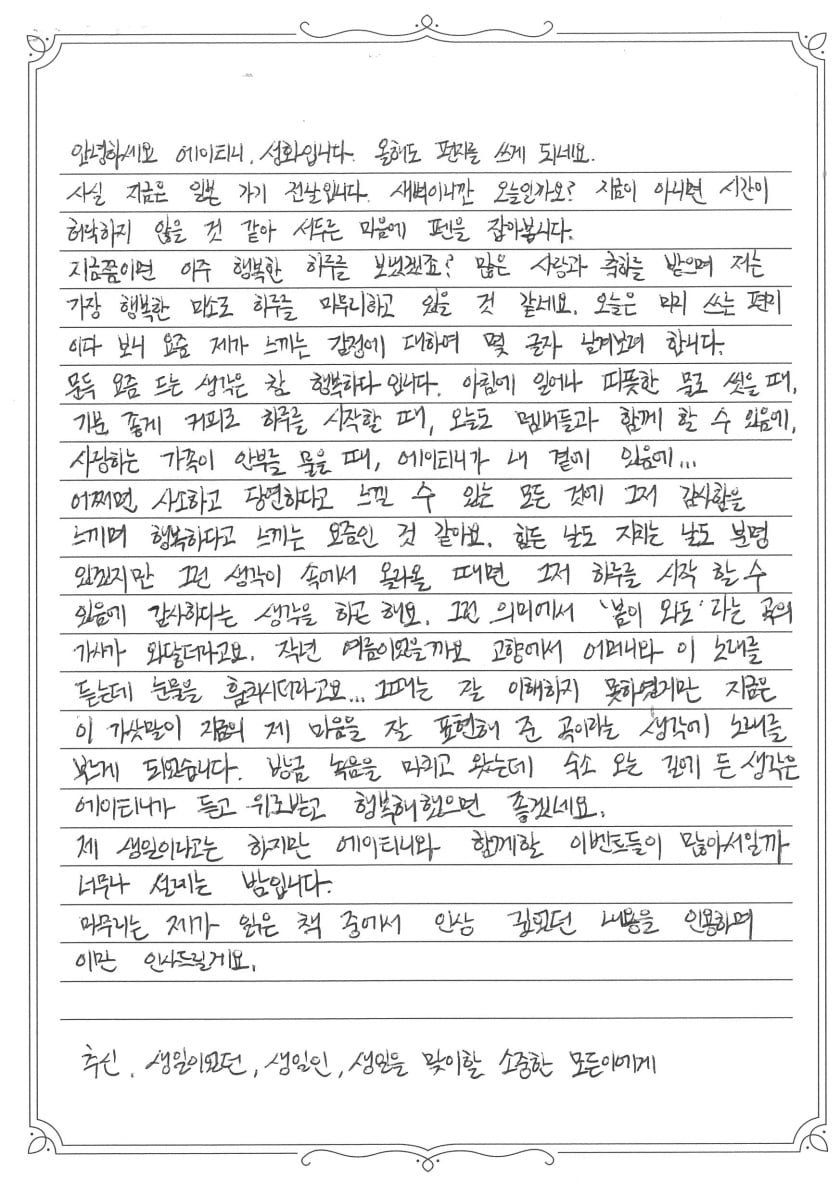 안녕하세요 에이티니, 성화입니다. 올해도 편지를 쓰게 되네요.
사실 지금은 일본 가기 전날입니다. 새벽이니깐 오늘일까요? 지금이 아니면 시간이
허락하지 않을 것 같아 서두른 마음에 펜을 잡아봅니다.
지금쯤이면 아주 행복한 하루를 보냈겠죠? 많은 사랑과 축하를 받으며 저는
가장 행복한 미소로 하루를 마무리하고 있을 것 같네요. 오늘은 미리 쓰는 편지
이다 보니 요즘 제가 느끼는 감정에 대하여 몇 글자 남겨보려 합니다.
문득 요즘 드는 생각은 참 행복하다 입니다. 아침에 일어나 따뜻한 물로 씻을 때,
기분 좋게 커피로 하루를 시작할 때, 오늘도 멤버들과 함께 할 수 있음에,
사랑하는 가족이 안부를 물을 때, 에이티니가 내 곁에 있음에...
어쩌면 사소하고 당연하다고 느낄 수 있는 모든 것에 그저 감사함을
느끼며 행복하다고 느끼는 요즘인 것 같아요. 힘든 날도 지치는 날도 분명
있겠지만 그런 생각이 속에서 올라올 때면 그저 하루를 시작 할 수
있음에 감사하다는 생각을 하곤 해요. 그런 의미에서 '봄이 와도' 라는 곡의
가사가 와닿더라고요. 작년 여름이었을까요 고향에서 어머니와 이 노래를
듣는데 눈물을 훔치시더라고요... 그때는 잘 이해하지 못하였지만 지금은
이 가삿말이 지금의 제 마음을 잘 표현해 준 곡이라는 생각에 노래를
부르게 되었습니다. 방금 녹음을 마치고 왔는데 숙소 오는 길에 든 생각은
에이티니가 듣고 위로받고 행복해했으면 좋겠네요.
제 생일이라고는 하지만 에이티니와 함께할 이벤트들이 많아서일까
너무나 설레는 밤입니다.
마무리는 제가 읽은 책 중에서 인상 깊었던 내용을 인용하며
이만 인사드릴게요.
추신, 생일이었던, 생일인, 생일을 맞이할 소중한 모든이에게